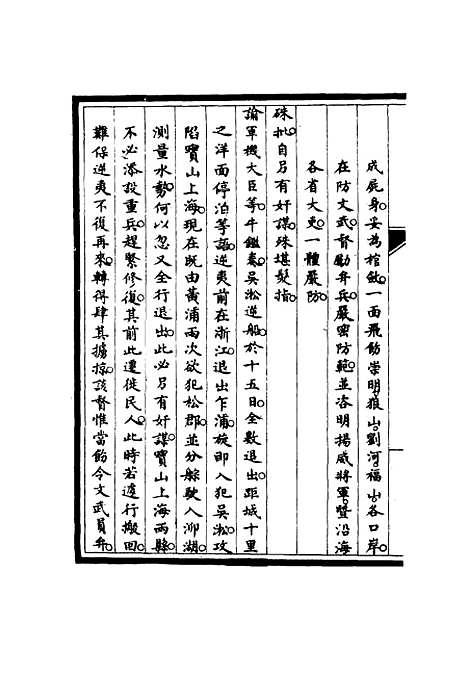 成屍身妥為棺斂一面飛飭崇明狼山劉河福山各口岸
在防文武督勵弁兵嚴密防範並咨明揚威將軍暨沿海
各省大吏一體嚴防
硃批自另有奸謀殊堪髮指
諭軍機大臣等牛鑑奏吳淞逆船於十五日全數退出距城十里
之洋面停泊等語逆夷前在浙江退出乍浦旋即入犯吳淞攻
陷寶山上海現在既由黃浦兩次欲犯松郡並分䑸駛入泖湖
測量水勢何以忽又全行退出此必另有奸謀寶山上海兩縣
不必添設重兵趕緊修復其前此遷徙民人此時若遽行搬回
難保逆夷不復再來轉得肆其擄掠該督惟當飭令文武員弁